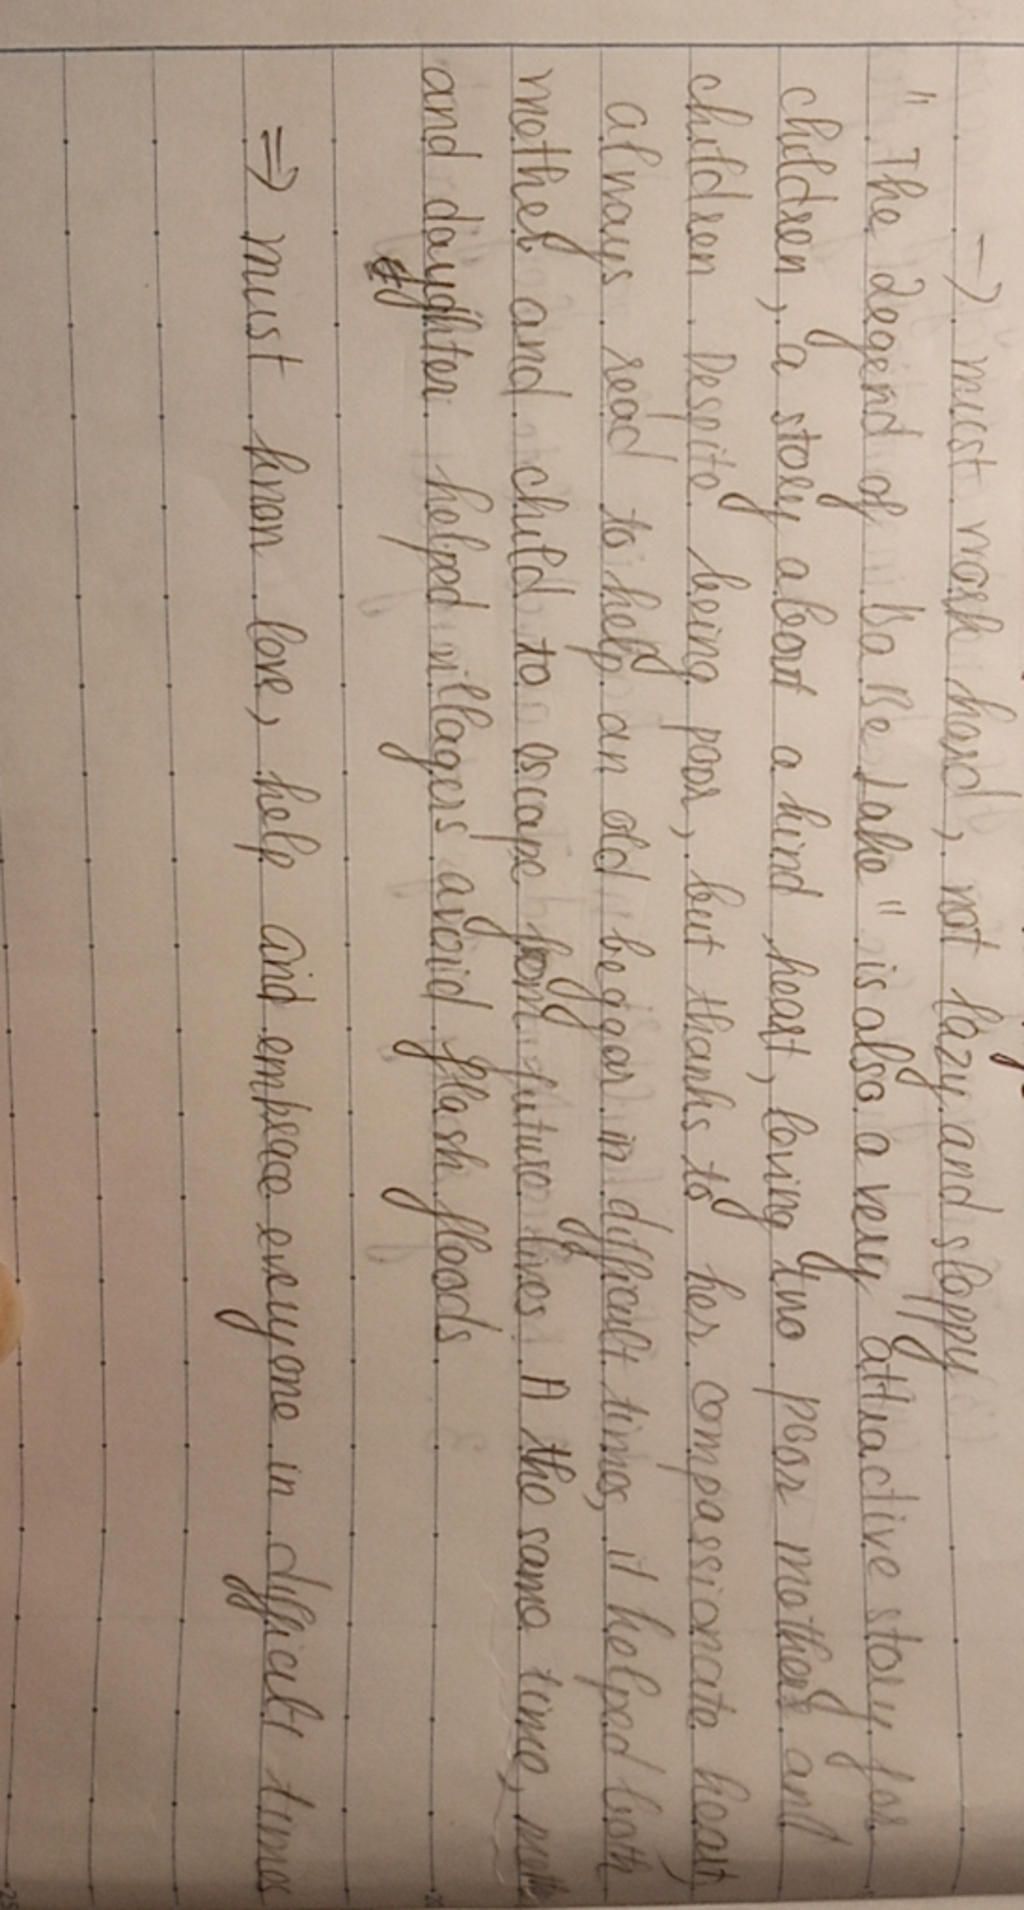 → must work hard, not lazy and sloppy
" The Legend of Ba Be Lake " is also a very attractive story for
children, a story about a kind heart, loving two poor mothers and
children. Despite being poor, but thanks to her compassionate heart,
always read to help an old beggar in difficult times, it helped both
mother and child to escape from future lives. A the same time,
and daughter helped villagers avoid flash floods
⇒ must know love, help and emprace everyone in difficult times